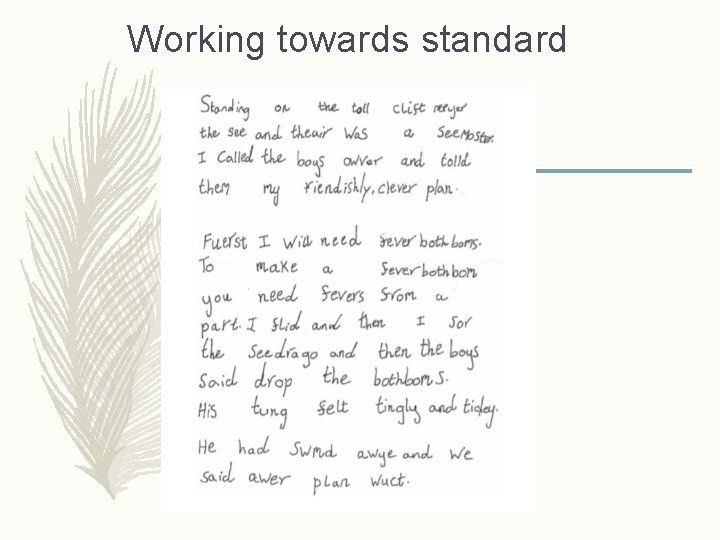 Working towards standard
Standing on the tall clift neeyer
the see and theair was a Seemoster.
I called the boys owver and tolld
them my fiendishly, clever plan.
Fuerst I will need fever bothboms.
To make a feverbothbom
you need fevers from a
part. I flid and then I sor
the seedrago and then the boys
said drop the bothboms.
His tung felt tingly and tigley.
He had swmd awye and we
said awer plan wuct.